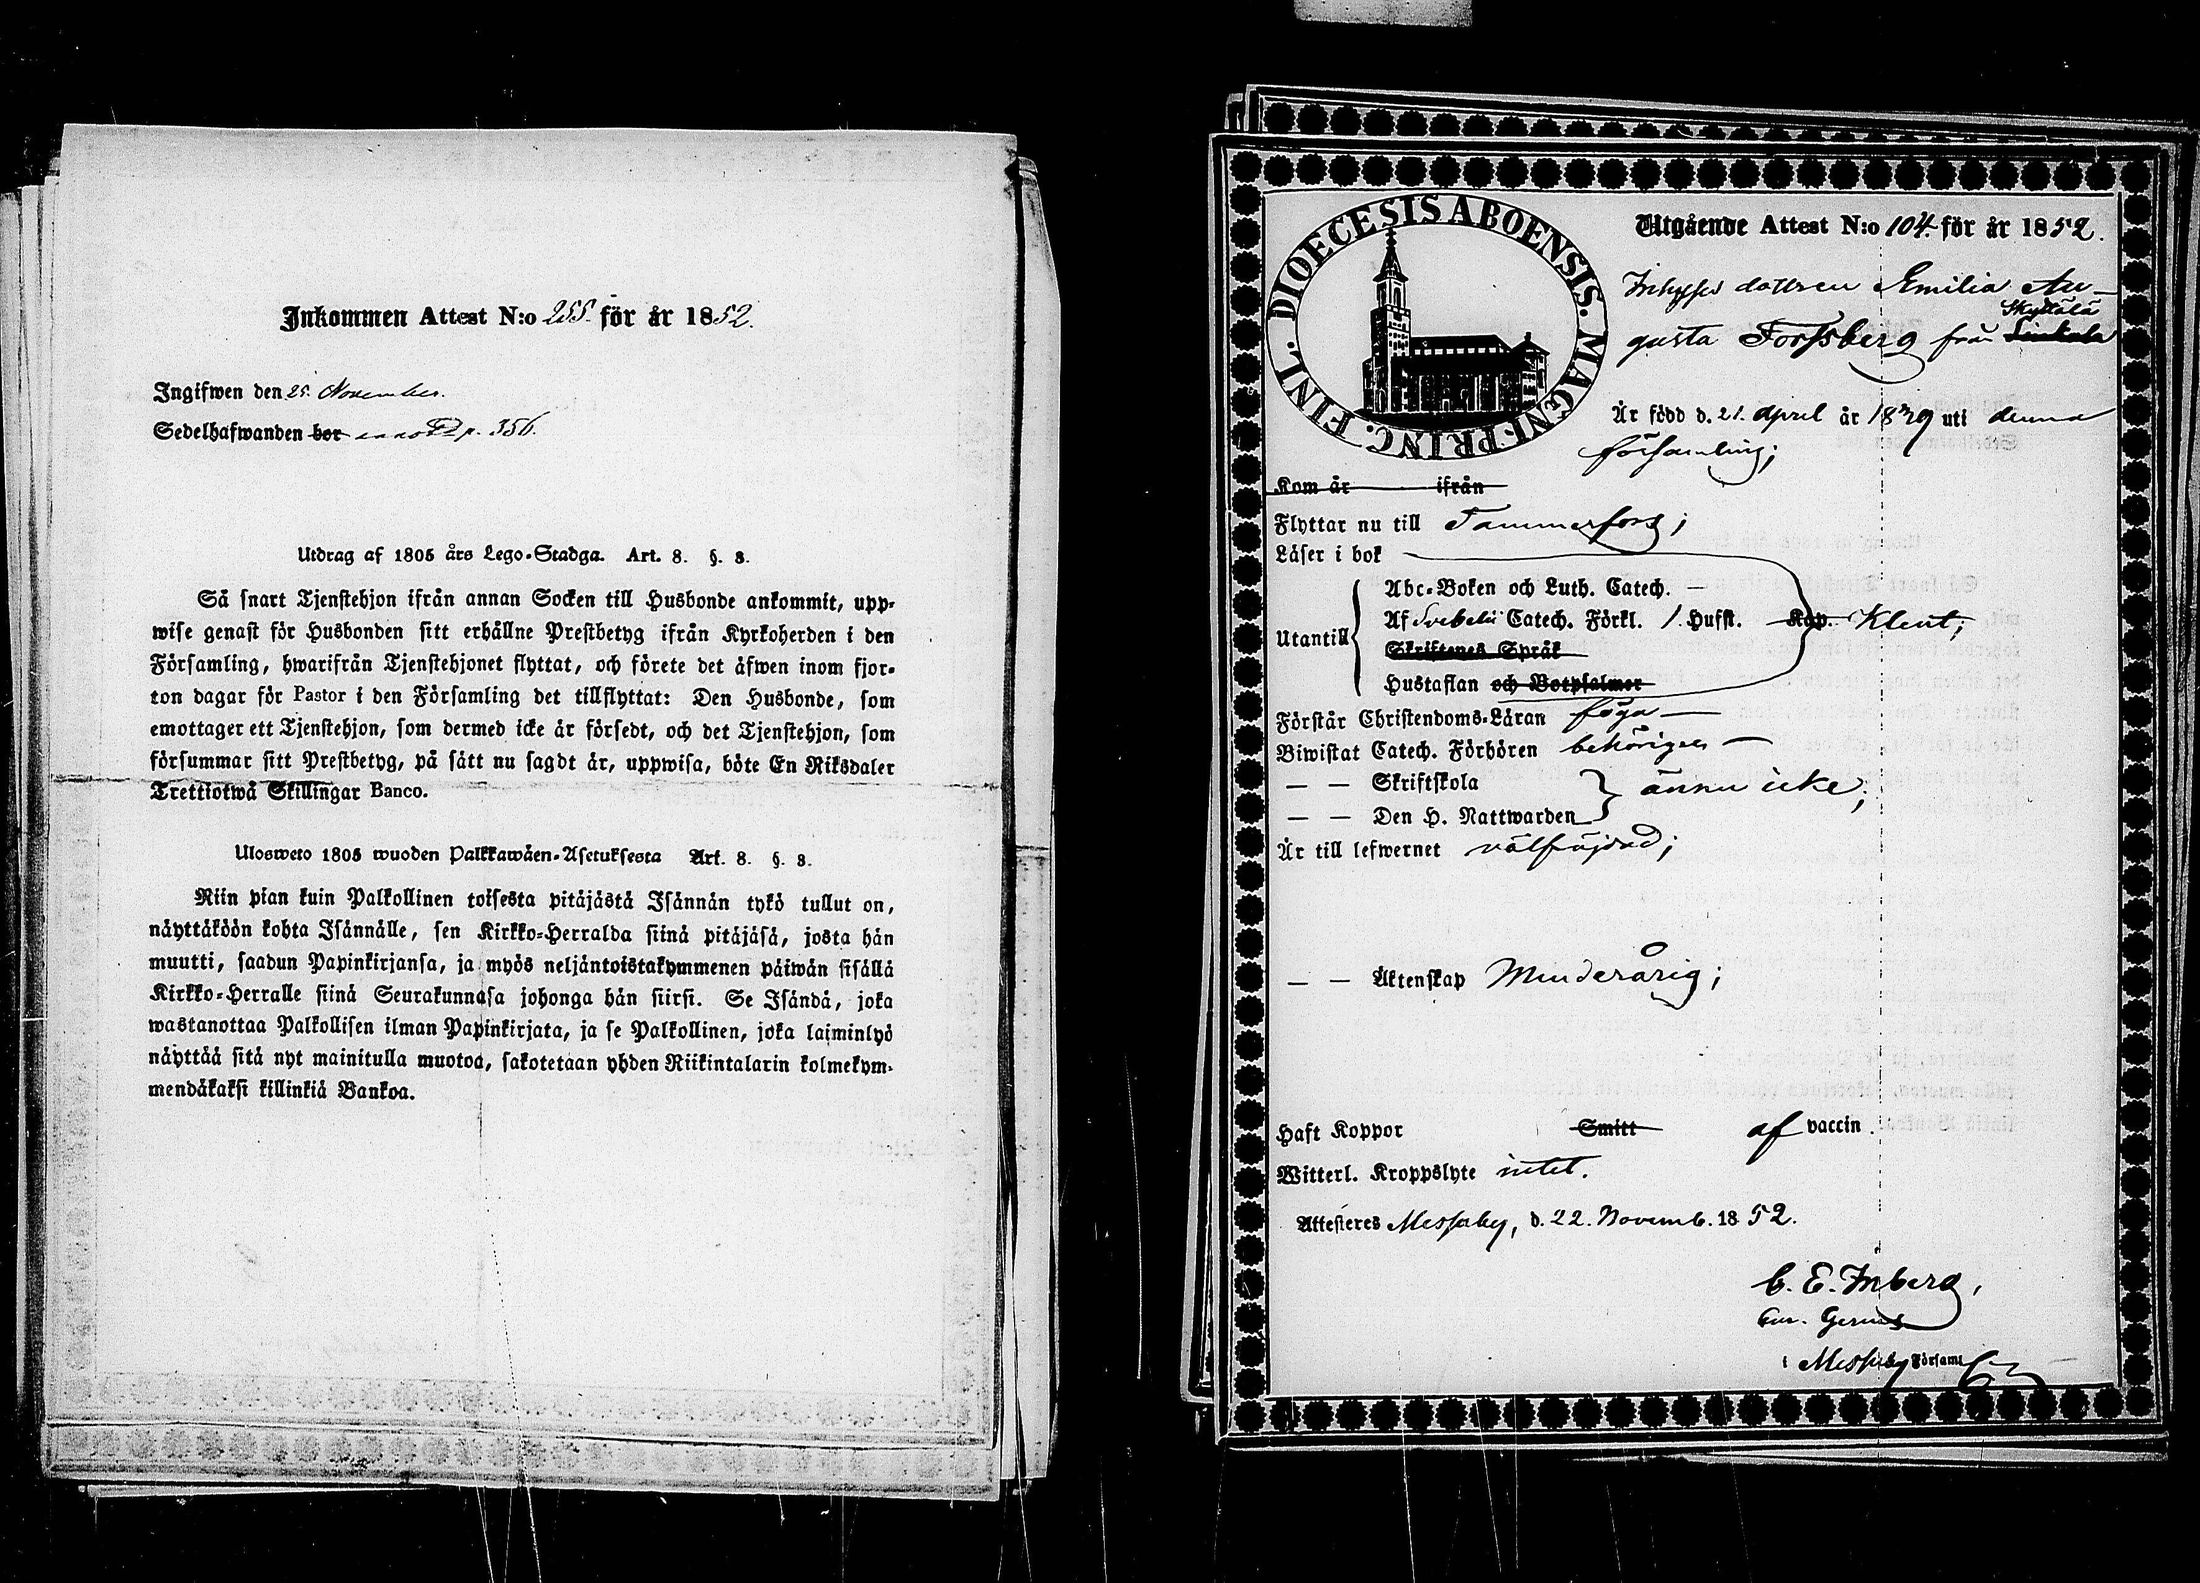 Inkommen Attest N:o 255. för år 1852.
Ingifwen den 25. November.
Sedelhafwanden bor p. 356.
Utdrag af 1805 års Lego-Stadga. Art. 8. §. 3.
Så snart Tjenstehjon ifrån annan Socken till Husbonde ankommit, upp-
wise genast för Husbonden sitt erhållne Prestbetyg ifrån Kyrkoherden i den
Församling, hwarifrån Tjenstehjonet flyttat, och förete det äfwen inom fjor-
ton dagar för Pastor i den Församling det tillflyttat: Den Husbonde, som
emottager ett Tjenstehjon, som dermed icke är försedt, och det Tjenstehjon, som
försummar sitt Prestbetyg, på sätt nu sagdt är, uppwisa, böte En Riksdaler
Trettiotwå Skillingar Banco.
Ulosweto 1805 wuoden Palkkawäen-Asetuksesta Art. 8. §. 3.
Niin pian kuin Palkollinen toisesta pitäjästä Isännän tykö tullut on,
näyttäköön kohta Isännälle, sen Kirkko-Herralda siinä pitäjäsä, josta hän
muutti, saadun Papinkirjansa, ja myös neljäntoistakymmenen päiwän sisällä
Kirkko-Herralle siinä Seurakunnasa johonga hän siirsi. Se Isändä, joka
wastanottaa Palkollisen ilman Papinkirjata, ja se Palkollinen, joka laiminlyö
näyttää sitä nyt mainitulla muotoa, sakotetaan yhden Riikintalarin kolmekym-
mendäkaksi killinkiä Bankoa.
DIOECESIS ABOENSIS. MAGNI. PRINC. FINL.
Utgående Attest N:o 104. för år 1852.
Inhyses dottren Emilia Au-
Skyttälä
gusta Forssberg från
Är född d. 21. April år 1839 uti denna
församling;
Kom år ifrån
Flyttar nu till Tammerfors;
Läser i bok
Abc-Boken och Luth. Catech. —
Utantill Af Svebelii Catech. Förkl. 1. Hufst. Kap. Klent;
Skriftenes Språk
Hustaflan och Botpsalmer
Förstår Christendoms-Läran föga —
Biwistat Catech. Förhören behörigen —
— — Skriftskola ännu icke;
— — Den H. Nattwarden
Är till lefwernet välfräjdad;
— — Äktenskap Minderårig;
Haft Koppor Smitt af vaccin.
Witterl. Kroppslyte intet.
Attesteras Messuby, d. 22. Novemb. 1852.
C. E. Inberg,
i Messuby Församl